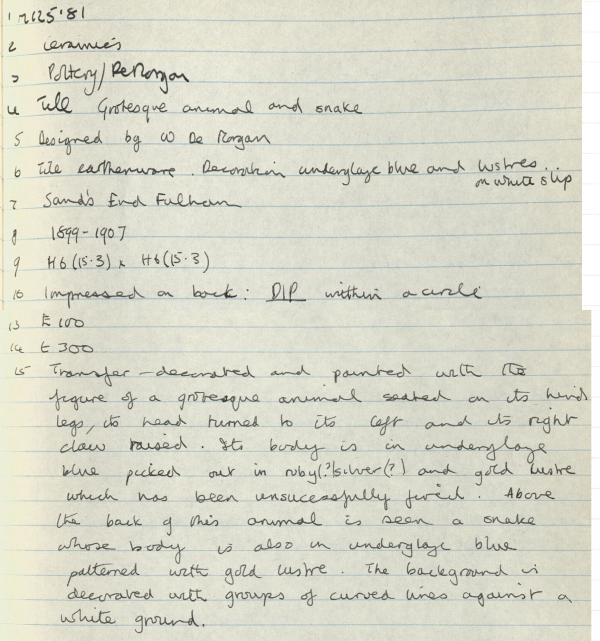 1 M25'81
2 Ceramics
3 Pottery/De Morgan
4 Tile Grotesque animal and snake
5 Designed by W De Morgan
6 Tile earthenware. Decoration underglaze blue and lustres.
on white slip
7 Sand's End Fulham
8 1899-1907
9 H6(15.3) x H6(15.3)
10 Impressed on back: DIP within a circle
13 £100
14 £300
15 Transfer-decorated and painted with the
figure of a grotesque animal seated on its hind
legs, its head turned to its left and its right
claw raised. Its body is in underglaze
blue picked out in ruby(?)silver(?) and gold lustre
which has been unsucessfully fired. Above
the back of this animal is seen a snake
whose body is also in underglaze blue
patterned with gold lustre. The background is
decorated with groups of curved lines against a
white ground.